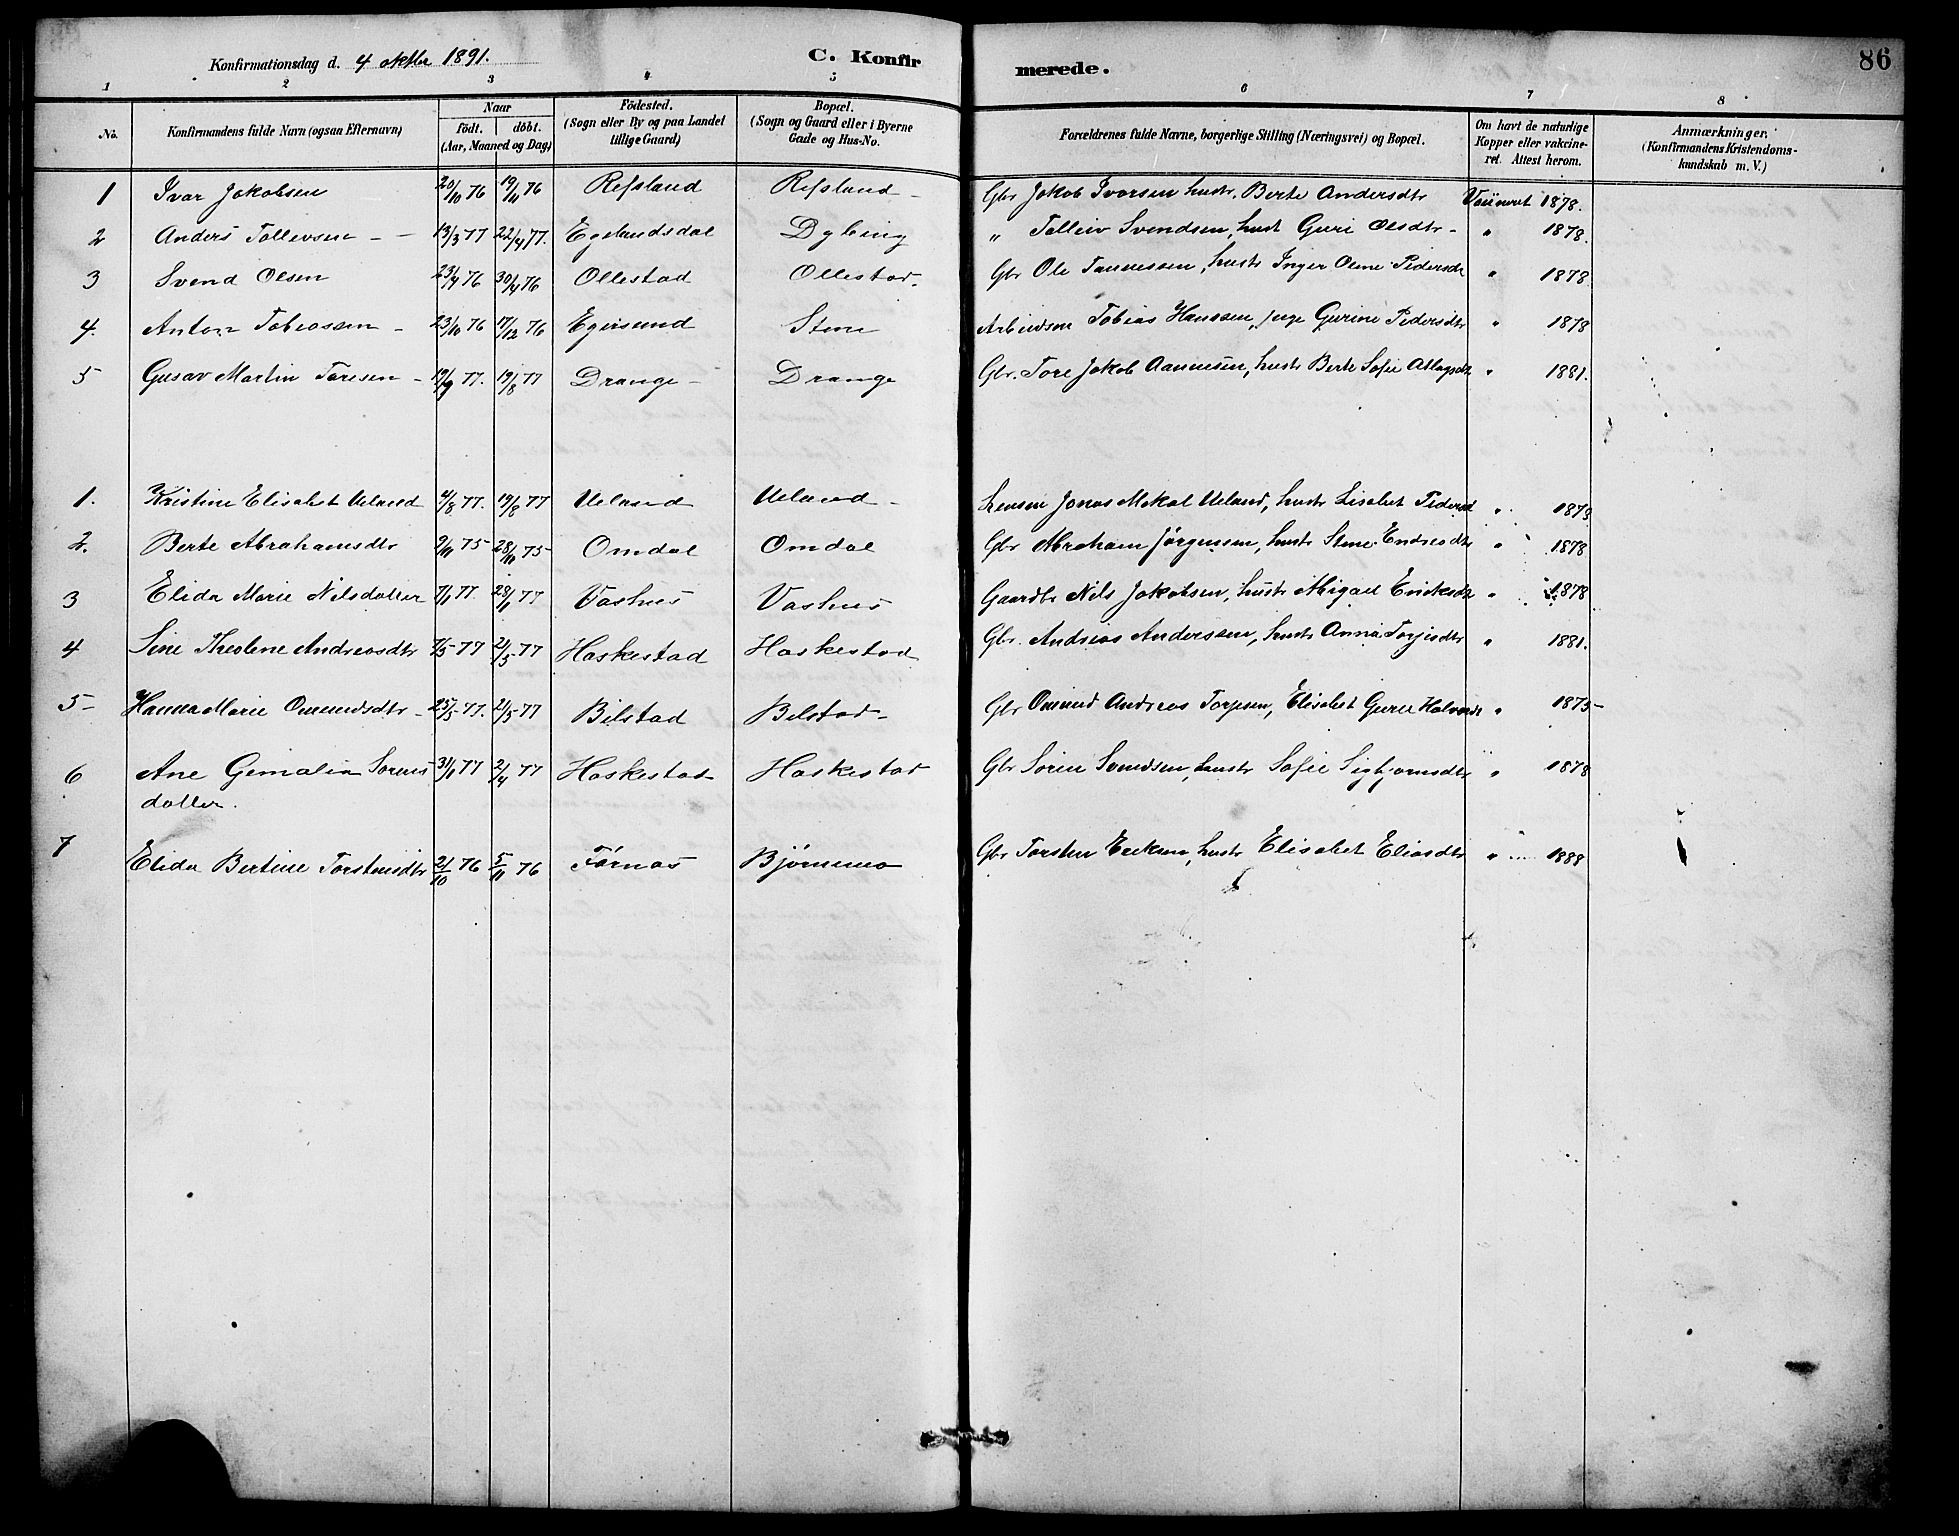 Konfirmationsdag d. 4 oktbr 1891. C. Konfirmerede. 86
1 2 3 4 5 6 7 8
No. Konfirmandens fulde Navn (ogsaa Efternavn) Naar födt. döbt. (Aar, Maaned og Dag) Födested. (Sogn eller By og paa Landet tillige Gaard) Bopæl. (Sogn og Gaard eller i Byerne Gade og Hus-No. Forældrenes fulde Navne, borgerlige Stilling (Næringsvei) og Bopæl. Om havt de naturlige Kopper eller vakcineret. Attest herom. Anmærkninger. (Konfirmandens Kristendomskundskab m. V.)
1 Ivar Jakobsen 20/10 76 19/11 76 Refsland Refsland Gbr Jakob Ivarsen hustr. Berte Andersdtr 1878.
2 Anders Tollevsen 13/3 77 22/4 77. Egelandsdal Dybing " Tolleiv Svendsen, hust Guri Olsdtr " 1878.
3 Svend Olsen 23/4 76 30/4 76 Ollestad Ollestad. Gbr Ole Tannessen, hustr Inger Oline Pedersdt " 1878
4. Anton Tobiassen 23/10 76 17/12 76 Egersund Stene Tobias Hanssen, Gurine Pedersdtr " 1878
5 Gusav Martin Toresen 19/9 77. 19/8 77 Drange Drange Gbr. Tore Jakob Aanensen, hustr Berte Sofie Atlagsdt " 1881.
1. Kristine Elisabet Ueland 4/8 77. 19/8 77 Ueland Ueland Jonas Mikal Ueland, hustr Lisabet Pedersd " 1878
2. Berte Abrahamsdtr 9/11 75 28/11 75 Omdal Omdal Gbr Abraham Jørgensen, hustr Stine Endresdtr " 1878
3 Elida Marie Nilsdatter 7/1 77 28/1 77 Vashus Vashus Gaardbr Nils Jakobsen, hustr Abigael Eriksdt " 1878
4 Sine Theoline Andreasdtr 7/5 77 21/5 77 Haskestad Haskestad Gbr. Andreas Anderssen, hustr Anna Torjisdtr " 1881.
5 Hanna Marie Omundsdtr 25/3 77. 21/5 77 Bilstad Bilstad Gbr Omund Andreas Torjesen, Elisabet Gurie " 1875
6 Ane Gemalia Sørens 31/1 77 2/4 77 Haskestad Haskestad Gbr Sören Svendsen, hustr Sofie Sigbjørnsdtr " 1878
datter.
7 Elida Bertine Torstensdtr 21/10 76 5/11 76 Förnas Bjørnmo Gbr Torsten Eriksen, hustr Elisabet Eliasdtr " 1888